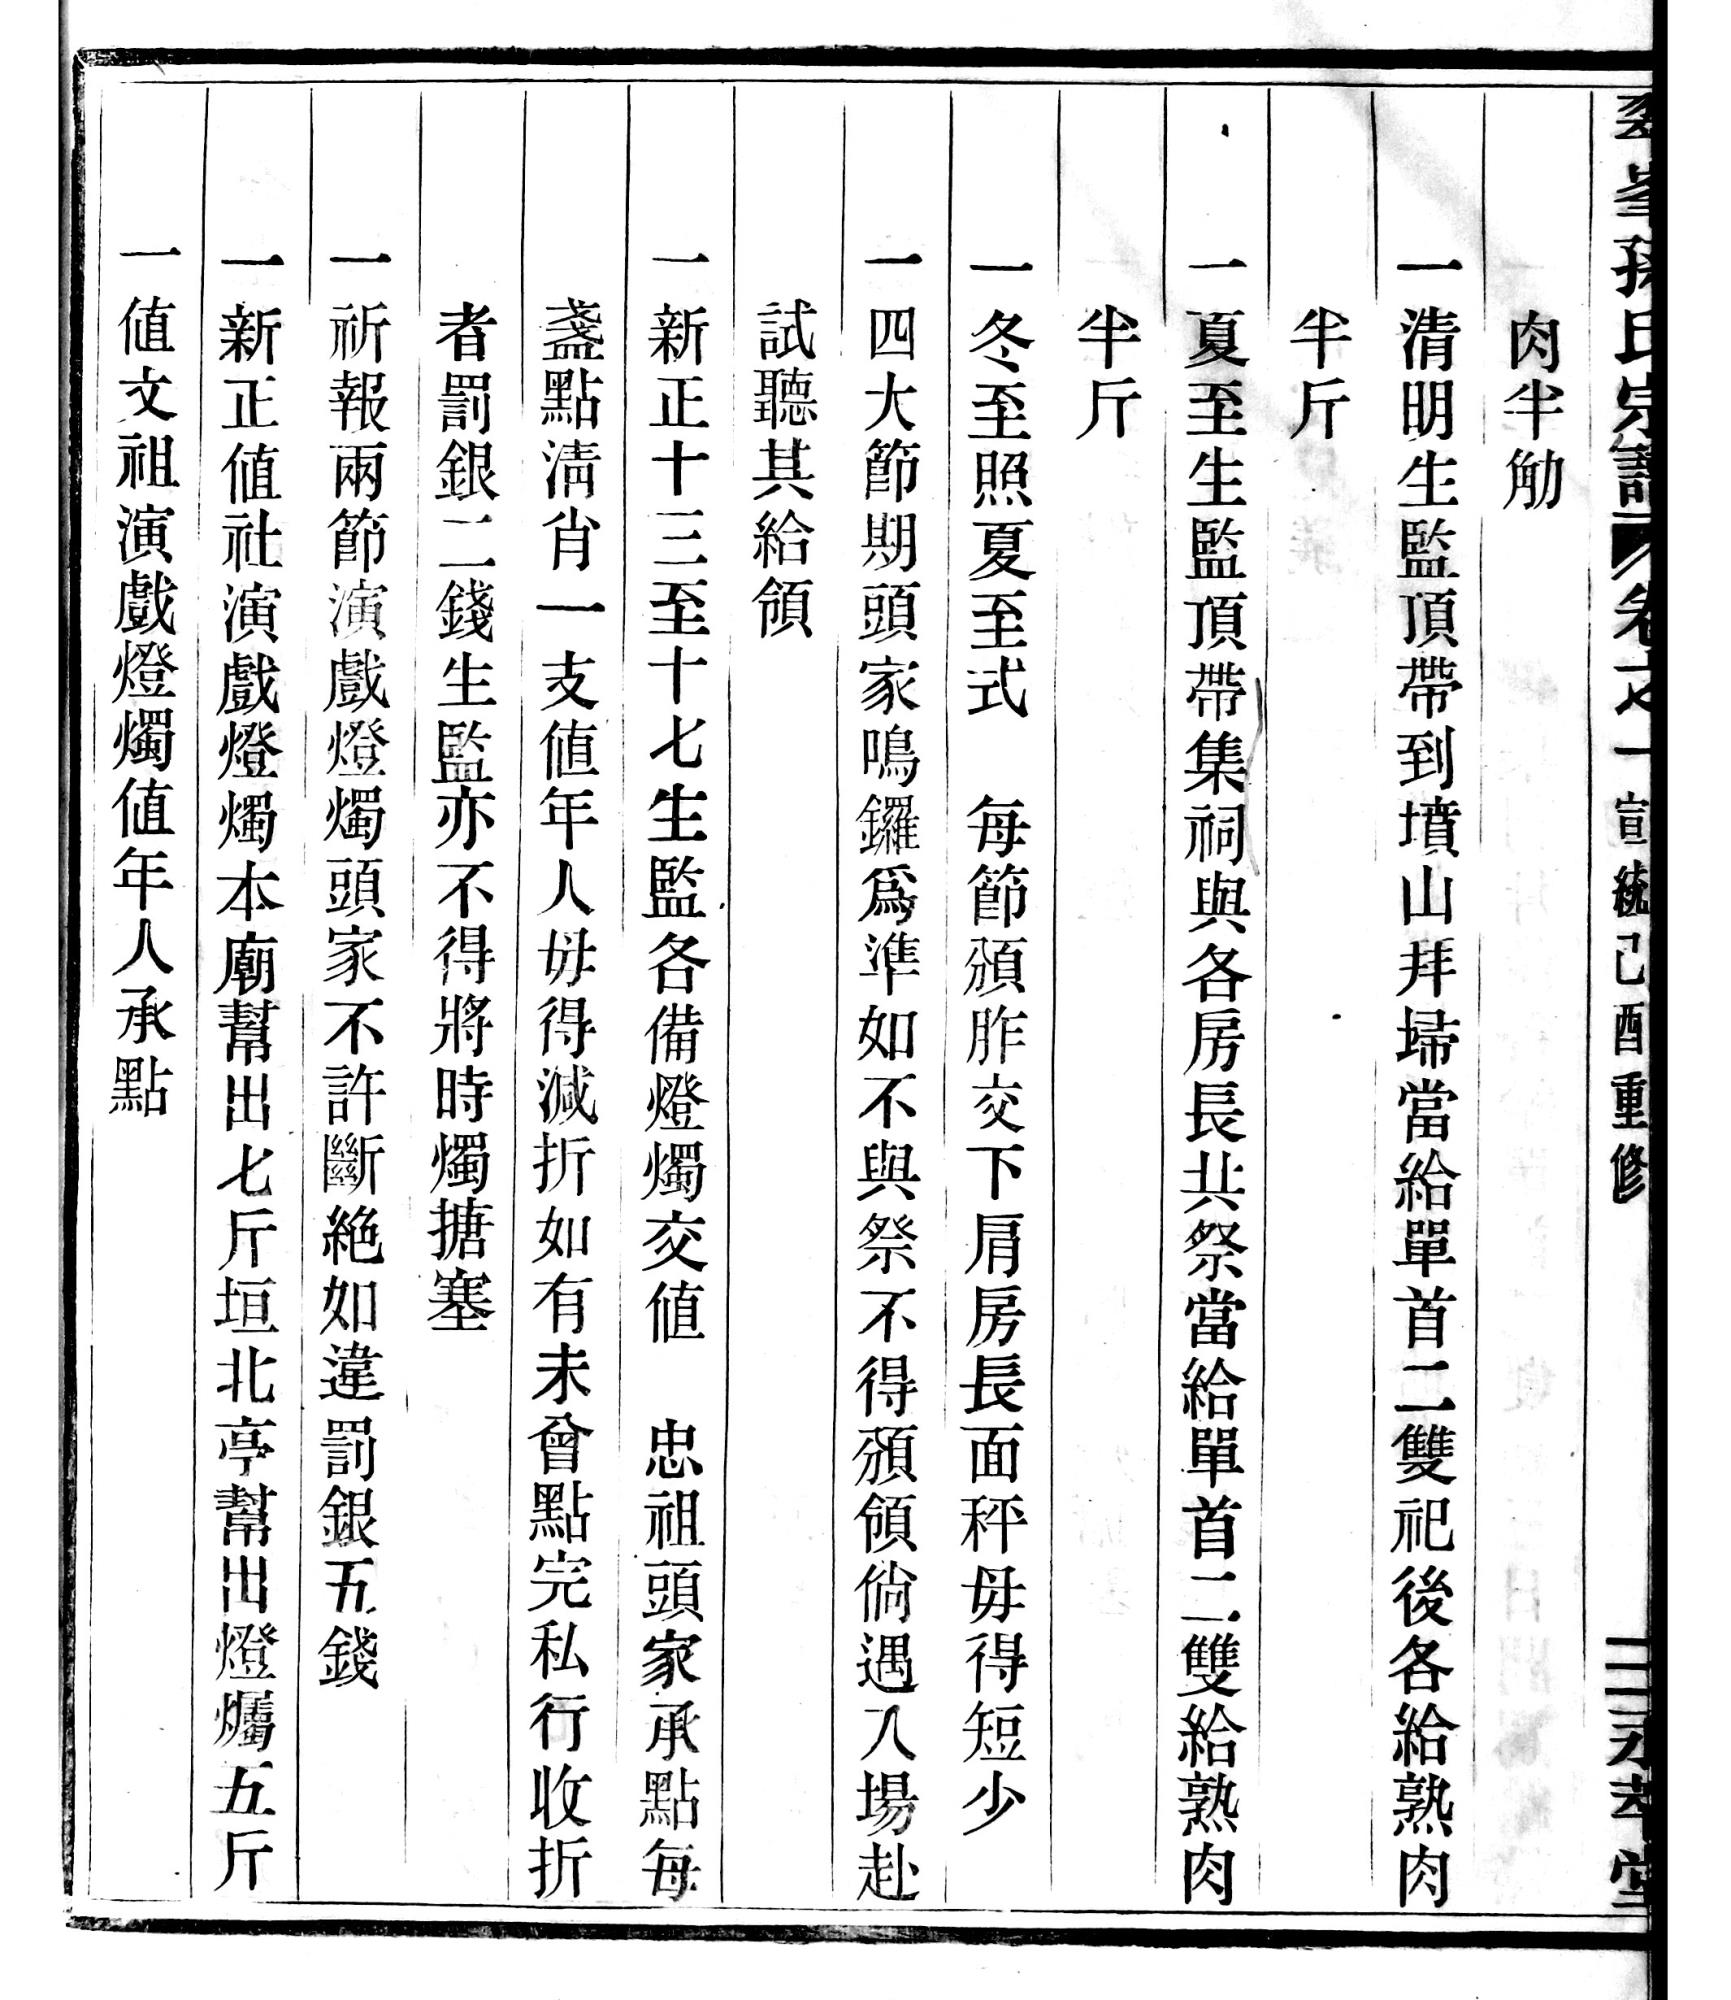 峯孫氏宗譜 卷之一 宣統己酉重修 永萃堂
肉半觔
一清明生監頂帶到墳山拜埽當給單首二雙祀後各給熟肉
半斤
一夏至生監頂帶集祠與各房長共祭當給單首二雙給熟肉
半斤
一冬至照夏至式 每節頒胙交下肩房長面秤毋得短少
一四大節期頭家鳴鑼爲準如不與祭不得頒領倘遇入場赴
試聽其給領
一新正十三至十七生監各備燈燭交值 忠祖頭家承點每
盞點淸肖一支値年人毋得減折如有未曾點完私行收折
者罰銀二錢生監亦不得將時燭搪塞
一祈報兩節演戲燈燭頭家不許斷絶如違罰銀五錢
一新正値社演戲燈燭本廟幫出七斤垣北亭幫出燈爥五斤
一値文祖演戲燈燭値年人承點